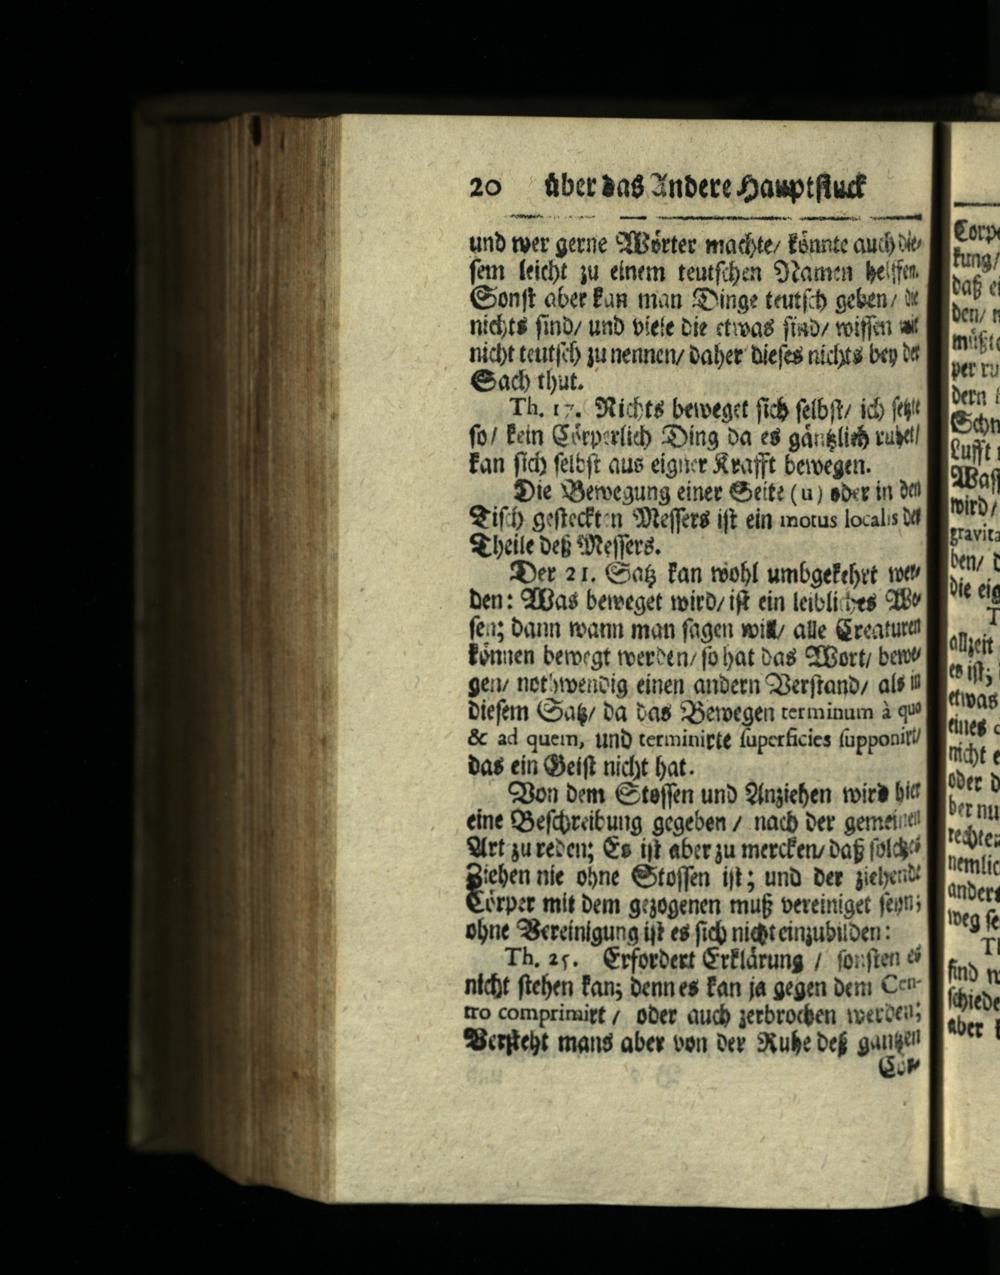 20 über das Andere Hauptstuck
und wer gerne Wörter machte/ könnte auch die-
sem leicht zu einem teutschen Namen helffen.
Sonst aber kan man Dinge teutsch geben/ die
nichts sind/ und viele die etwas sind/ wissen wir
nicht teutsch zu nennen/ daher dieses nichts bey der
Sach thut.
Th. 17. Nichts beweget sich selbst/ ich setzte
so/ kein Cörperlich Ding da es gäntzlich ruhet/
kan sich selbst aus eigner Krafft bewegen.
Die Bewegung einer Seite (u) oder in den
Tisch gesteckten Messers ist ein motus localis der
Theile deß Messers.
Der 21. Satz kan wohl umbgekehrt wer-
den: Was beweget wird/ ist ein leibliches We-
sen; dann wann man sagen will/ alle Creaturen
können bewegt werden/ so hat das Wort/ bewe-
gen/ nothwendig einen andern Verstand/ als in
diesem Satz/ da das Bewegen terminum à quo
& ad quem, und terminirte superficies supponirt/
das ein Geist nicht hat.
Von dem Stossen und Anziehen wird hier
eine Beschreibung gegeben/ nach der gemeinen
Art zu reden; Es ist aber zu mercken/ daß solches
Ziehen nie ohne Stossen ist; und der ziehende
Cörper mit dem gezogenen muß vereiniget seyn;
ohne Vereinigung ist es sich nicht einzubilden:
Th. 25. Erfordert Erklärung / sonsten es
nicht stehen kan; denn es kan ja gegen dem Cen-
tro comprimirt / oder auch zerbrochen werden;
Versteht mans aber von der Ruhe deß gantzen
Cör-
Corp
kung/
daß
den/
müßte
per ru
dern
Schn
Lufft
Wass
wird/
gravita
ben/
die eig
allzeit
es ist;
etwas
eines
nicht
oder
ber nu
rechte
nemlic
anders
weg se
Th
sind
schiede
aber